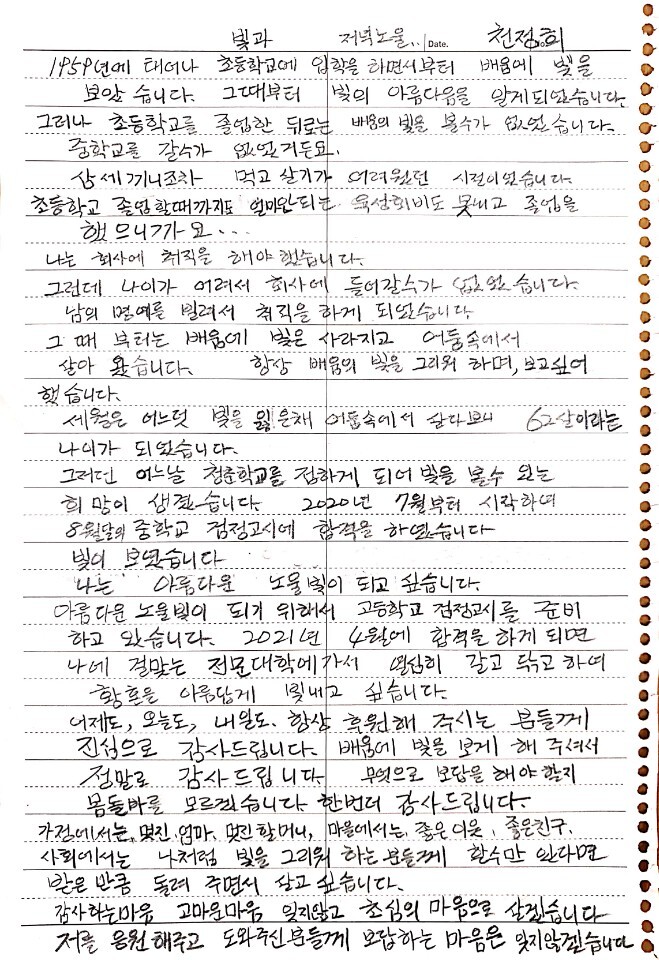 빛과 저녁노을.. Date. 천정희
1959년에 태어나 초등학교에 입학을 하면서부터 배움에 빛을
보았습니다. 그때부터 빛의 아름다움을 알게되었습니다.
그러나 초등학교를 졸업한 뒤로는 배움의 빛을 볼수가 없었습니다.
중학교를 갈수가 없었거든요.
삼세끼니조차 먹고 살기가 어려웠던 시절이었습니다.
초등학교 졸업할때까지도 얼마안되는 육성회비도 못내고 졸업을
했으니가요...
나는 회사에 취직을 해야했습니다.
그런데 나이가 어려서 회사에 들어갈수가 없었습니다.
남의 명예를 빌려서 취직을 하게 되었습니다.
그때부터는 배움에 빛은 사라지고 어둠속에서
살아 왔습니다. 항상 배움의 빛을 그리워 하며, 보고싶어
했습니다.
세월은 어느덧 빛을 잃은채 어둠속에서 살다보니 62살이라는
나이가 되었습니다.
그러던 어느날 청춘학교를 접하게 되어 빛을 볼수 있는
희망이 생겼습니다. 2020년 7월부터 시작하여
8월달의 중학교 검정고시에 합격을 하였습니다
빛이 보였습니다
나는 아름다운 노을빛이 되고 싶습니다.
아름다운 노을빛이 되기 위해서 고등학교 검정고시를 준비
하고 있습니다. 2021년 4월에 합격을 하게 되면
나에 걸맞는 전문대학에가서 열심히 갈고 닦고 하여
황혼을 아름답게 빛내고 싶습니다.
어제도, 오늘도, 내일도. 항상 후원해 주시는 분들께
진심으로 감사드립니다. 배움에 빛을 보게 해 주셔서
정말로 감사드립니다. 무엇으로 보답을 해야 할지
몸둘바를 모르겠습니다. 한번더 감사드립니다.
가정에서는, 멋진 엄마, 멋진할머니, 마을에서는, 좋은이웃, 좋은친구.
사회에서는 나처럼 빛을 그리워 하는 분들께 할수만 있다면
받은 만큼 돌려 주면서 살고 싶습니다.
감사하는마음 고마운마음 잊지않고 초심의 마음으로 살겠습니다
저를 응원해주고 도와주신분들께 보답하는 마음은 잊지않겠습니다